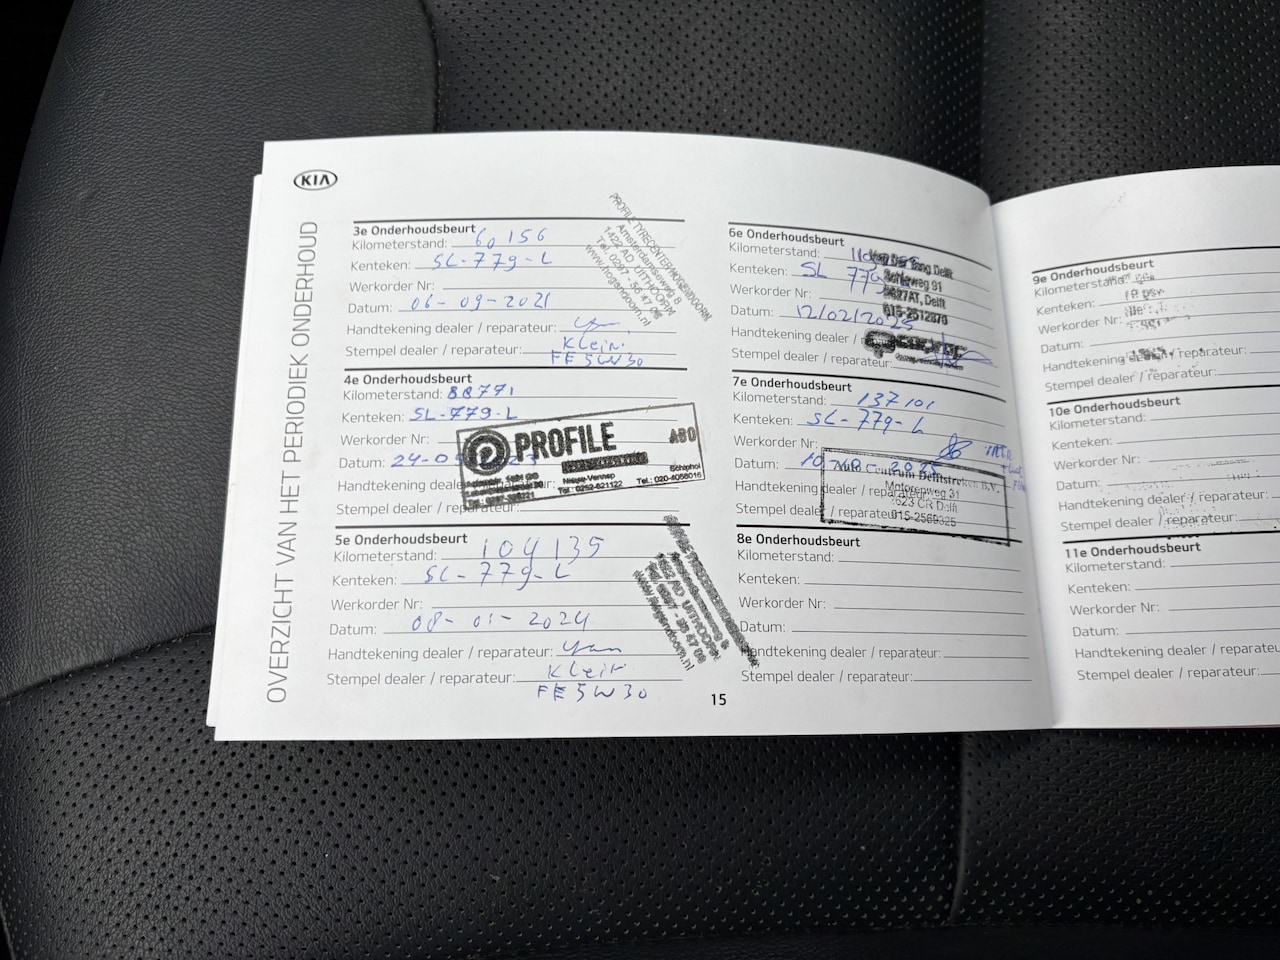 KIA
OVERZICHT VAN HET PERIODIEK ONDERHOUD
3e Onderhoudsbeurt
Kilometerstand: 60 156
Kenteken: SL-779-L
Werkorder Nr:
Datum: 06-09-2021
Handtekening dealer / reparateur:
Stempel dealer / reparateur: Klein
FE 5W30
PROFILE TYRECENTER HOGENDOORN
Amsterdamseweg 8
1422 AD UITHOORN
Tel. 0297 - 56 47 06
www.hogendoorn.nl
4e Onderhoudsbeurt
Kilometerstand: 88771
Kenteken: SL-779-L
Werkorder Nr:
Datum: 24-0
Handtekening dealer / reparateur:
Stempel dealer / reparateur:
PROFILE
Nieuw-Vennep
Tel.: 0252-621122
Schiphol
Tel.: 020-6056016
5e Onderhoudsbeurt
Kilometerstand: 104 135
Kenteken: SL-779-L
Werkorder Nr:
Datum: 08-01-2024
Handtekening dealer / reparateur:
Stempel dealer / reparateur: Klein
FE 5W30
1422 AD UITHOORN
15
6e Onderhoudsbeurt
Kilometerstand:
Kenteken: SL 779
Werkorder Nr:
Datum: 12/02/2025
Handtekening dealer /
Stempel dealer / reparateur:
Delft
2627AT, Delft
015-2612870
7e Onderhoudsbeurt
Kilometerstand: 137101
Kenteken: SL-779-L
Werkorder Nr:
Datum: 10 2025
Handtekening dealer / reparateur:
Stempel dealer / reparateur:
Auto Centrum Delftstreken B.V.
Motorenweg 31
2623 CR Delft
015-2569325
8e Onderhoudsbeurt
Kilometerstand:
Kenteken:
Werkorder Nr:
Datum:
Handtekening dealer / reparateur:
Stempel dealer / reparateur:
9e Onderhoudsbeurt
Kilometerstand:
Kenteken:
Werkorder Nr:
Datum:
Handtekening dealer / reparateur:
Stempel dealer / reparateur:
10e Onderhoudsbeurt
Kilometerstand:
Kenteken:
Werkorder Nr:
Datum:
Handtekening dealer / reparateur:
Stempel dealer / reparateur:
11e Onderhoudsbeurt
Kilometerstand:
Kenteken:
Werkorder Nr:
Datum:
Handtekening dealer / reparateur:
Stempel dealer / reparateur: